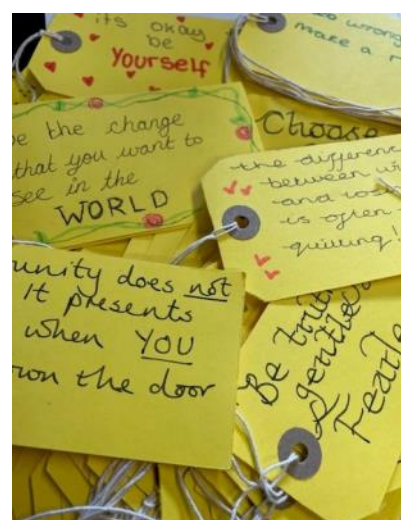 its okay
be
Yourself
to wrong
make a
Choose
be the change
that you want to
see in the
WORLD
the difference
between
and
is often
quitting!
unity does not
It presents
when YOU
the door
Be
gentle
Fearle